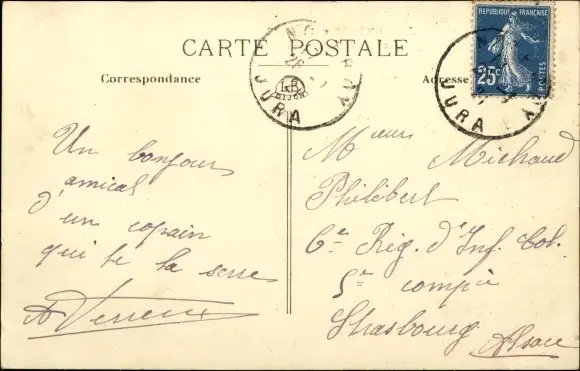 CARTE POSTALE
Correspondance
Adresse
REPUBLIQUE FRANÇAISE
25c
POSTES
JURA
JURA
Un bonjour
amical
d'un copain
qui te la serre
Mr Michaud
Philibert
6e Rég. d'Inf. Col.
5e compie
Strasbourg
Alsace